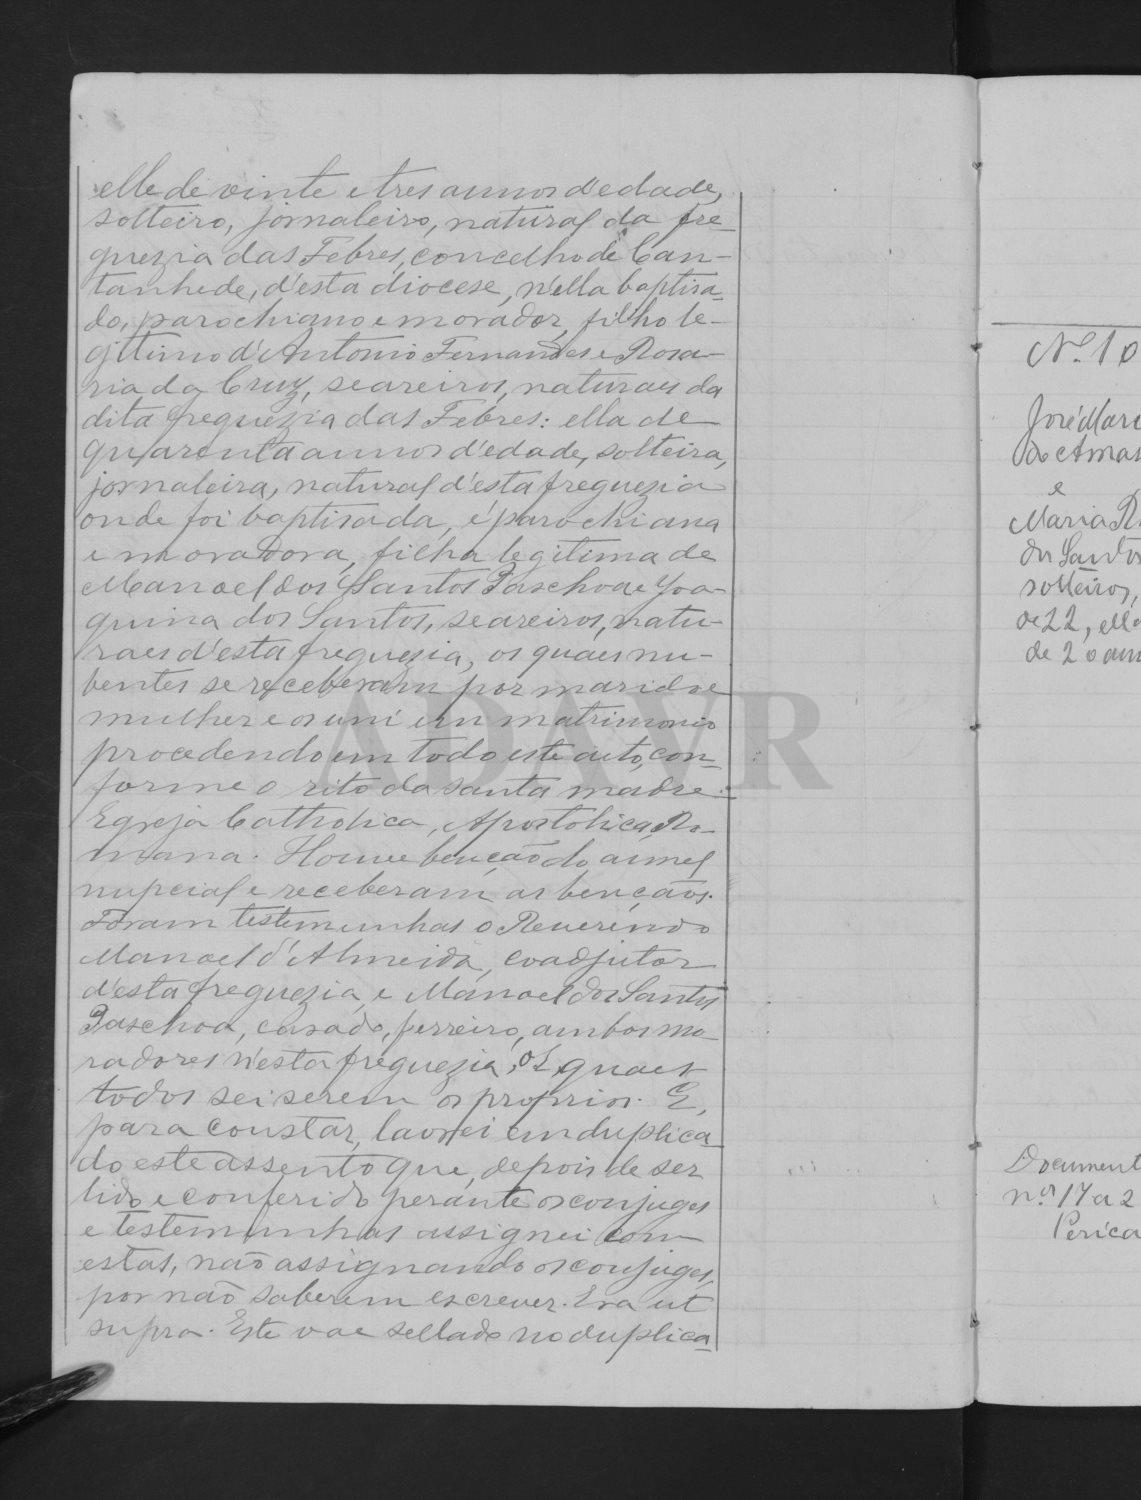 elle de vinte e tres annos d'edade,
solteiro, jornaleiro, natural da fre-
guezia das Febres, concelho de Can-
tanhede, d'esta diocese, n'ella baptisa-
do, parochiano e morador, filho le-
gitimo d'Antonio Fernandes e Rosa-
ria da Cruz, seareiros, naturaes da
dita freguezia das Febres: ella de
quarenta annos d'edade, solteira,
jornaleira, natural d'esta freguezia
onde foi baptisada, é parochiana
e moradora, filha legitima de
Manoel dos Santos Paschoa e Joa-
quina dos Santos, seareiros, natu-
raes d'esta freguezia, os quaes nu-
bentes se receberam por marido e
mulher e os uni em matrimonio
procedendo em todo este acto, con-
forme o rito da santa madre
Egreja Catholica, Apostolica, Ro-
mana. Houve benção do annel
nupcial e receberam as bençãos.
Foram testemunhas o Reverendo
Manoel d'Almeida, coadjutor
d'esta freguezia, e Manoel dos Santos
Paschoa, casado, ferreiro, ambos mo-
radores n'esta freguezia, os quaes
todos sei serem os proprios. E,
para constar, lavrei em duplica-
do este assento que, depois de ser
lido e conferido perante os conjuges
e testemunhas assignei com
estas, não assignando os conjuges,
por não saberem escrever. Era ut
supra. Este vae sellado no duplica-
Nº 10
José Mari
do Amar
e
Maria R.
dos Santos
solteiros,
de 22, ella
de 20 ann
Document
nos 17 a 2
ADAVR